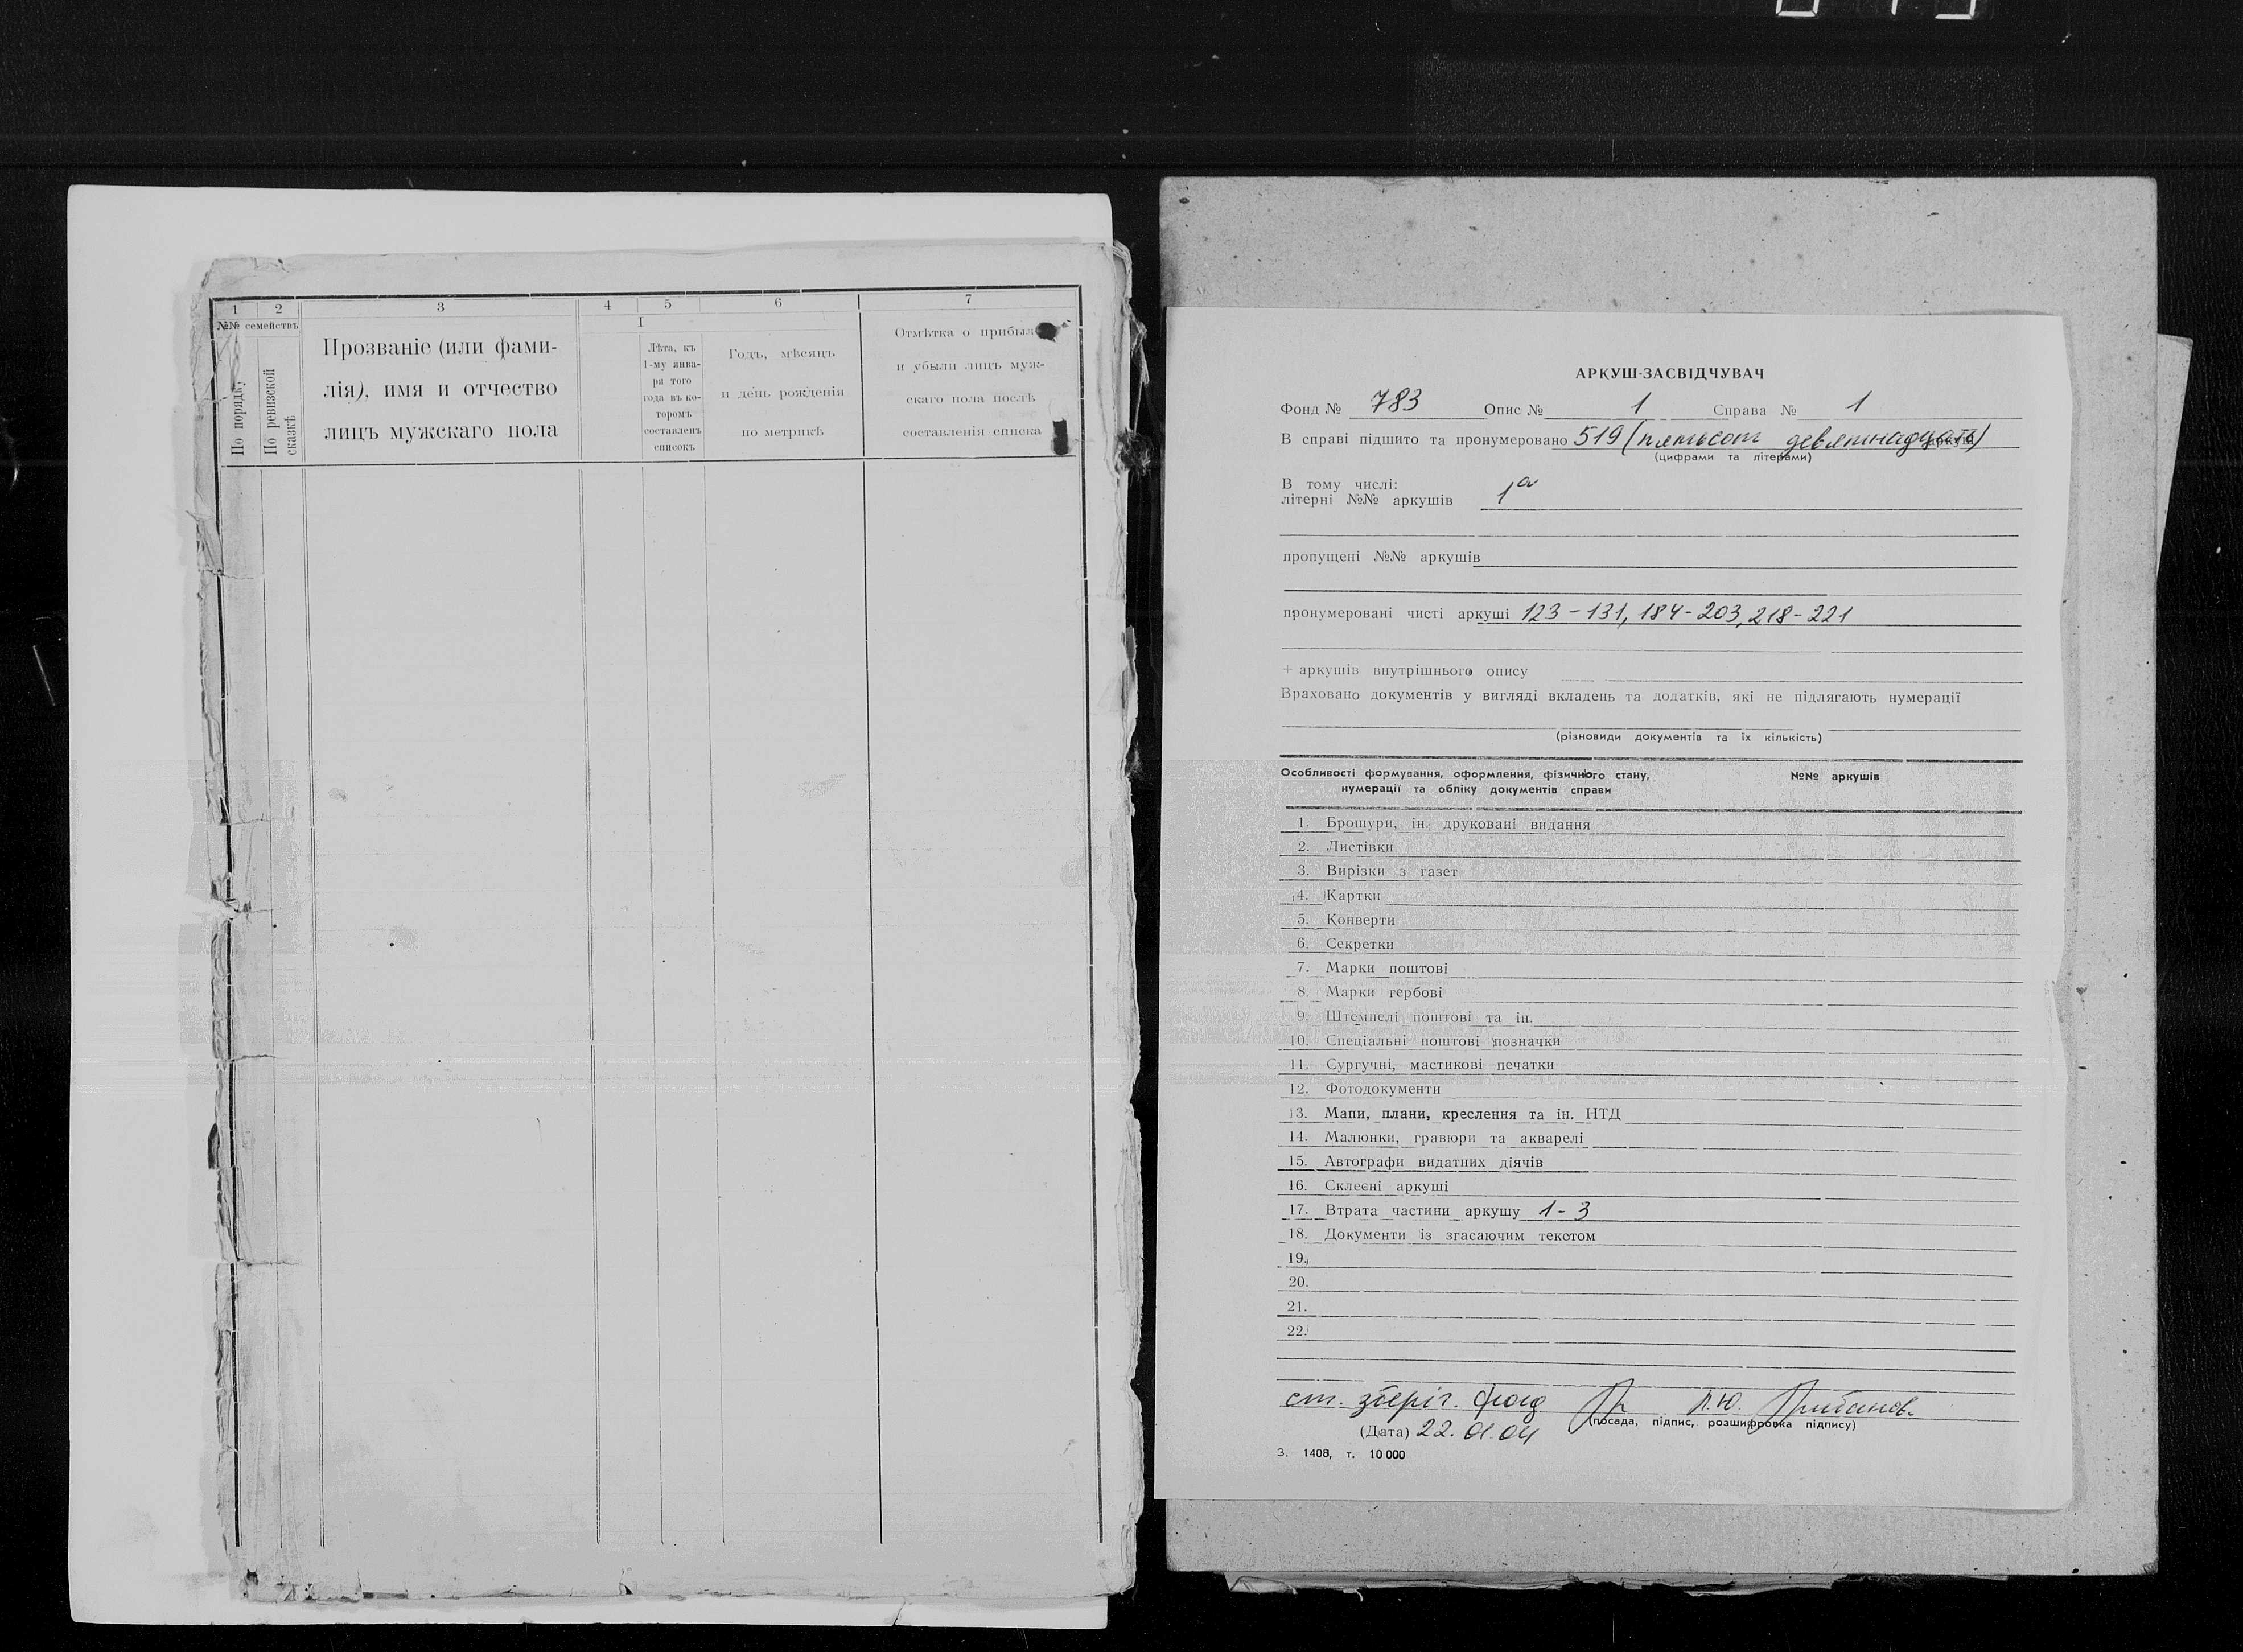 1 2 3 4 5 6 7
№№ семействъ
По порядку
По ревизской сказкѣ
Прозваніе (или фами-
лія), имя и отчество
лицъ мужскаго пола
I
Лѣта, къ
1-му янва-
ря того
года въ ко-
торомъ
составленъ
списокъ
Годъ, мѣсяцъ
и день рожденія
по метрикѣ
Отмѣтка о прибыл
и убыли лицъ муж-
скаго пола послѣ
составленія списка
АРКУШ-ЗАСВІДЧУВАЧ
Фонд № 783 Опис № 1 Справа № 1
В справі підшито та пронумеровано 519 (пятьсот девятнадцать) аркушів
(цифрами та літерами)
В тому числі:
літерні №№ аркушів 1а
пропущені №№ аркушів
пронумеровані чисті аркуші 123-131, 184-203, 218-221
+ аркушів внутрішнього опису
Враховано документів у вигляді вкладень та додатків, які не підлягають нумерації
(різновиди документів та їх кількість)
Особливості формування, оформлення, фізичного стану, №№ аркушів
нумерації та обліку документів справи
1. Брошури, ін. друковані видання
2. Листівки
3. Вирізки з газет
4. Картки
5. Конверти
6. Секретки
7. Марки поштові
8. Марки гербові
9. Штемпелі поштові та ін.
10. Спеціальні поштові позначки
11. Сургучні, мастикові печатки
12. Фотодокументи
13. Мапи, плани, креслення та ін. НТД
14. Малюнки, гравюри та акварелі
15. Автографи видатних діячів
16. Склеєні аркуші
17. Втрата частини аркушу 1-3
18. Документи із згасаючим текстом
19.
20.
21.
22.
ст. зберіг. фонд
(посада, підпис, розшифровка підпису)
(Дата) 22.01.04
З. 1408, т. 10 000